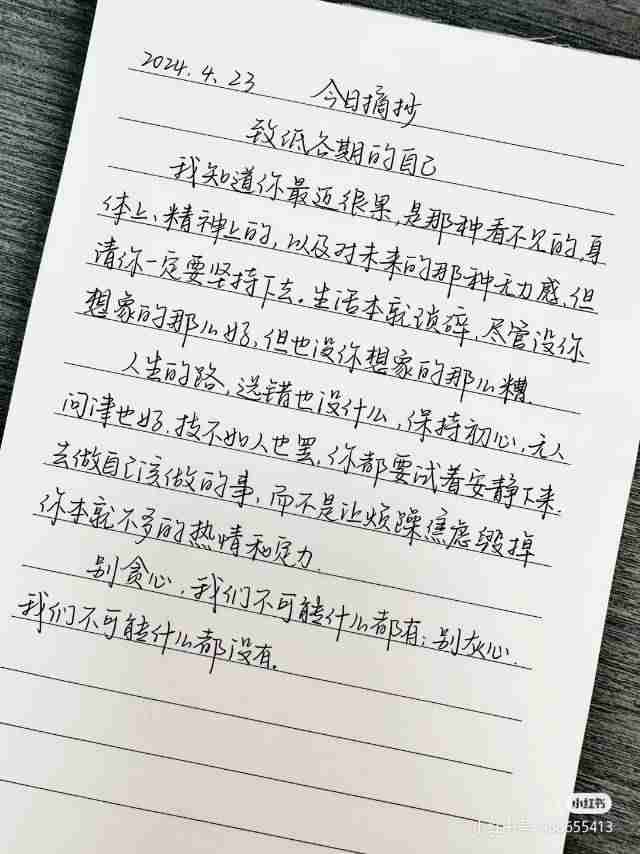 2024.4.23 今日摘抄
致低谷期的自己
我知道你最近很累,是那种看不见的,身
体上、精神上的,以及对未来的那种无力感,但
请你一定要坚持下去。生活本就琐碎,尽管没你
想象的那么好,但也没你想象的那么糟.
人生的路,选错也没什么,保持初心,无人
问津也好,技不如人也罢,你都要试着安静下来.
去做自己该做的事,而不是让烦躁焦虑毁掉
你本就不多的热情和定力.
别贪心,我们不可能什么都有;别灰心.
我们不可能什么都没有.
小红书